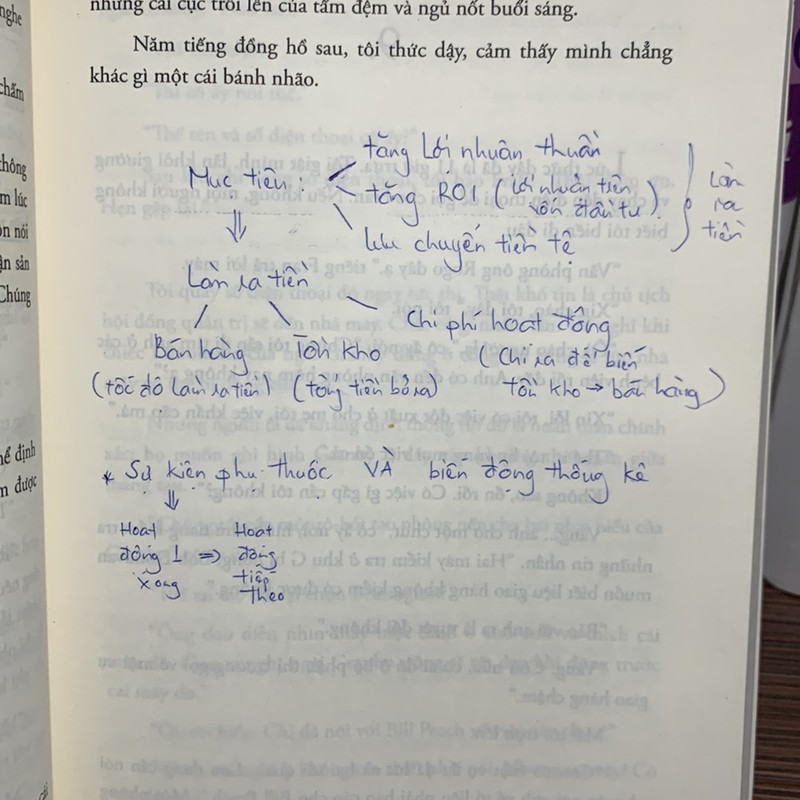 nghe
chấm
những cái cục trồi lên của tấm đệm và ngủ nốt buổi sáng.
Năm tiếng đồng hồ sau, tôi thức dậy, cảm thấy mình chẳng
khác gì một cái bánh nhão.
tăng lợi nhuận thuần
Mục tiêu: tăng ROI (lợi nhuận trên vốn đầu tư)
lưu chuyển tiền tệ
Làm ra tiền
⇓
Làm ra tiền
Bán hàng Tồn kho Chi phí hoạt động
(tốc độ làm ra tiền) (tổng tiền bỏ ra) (Chi ra để biến tồn kho → bán hàng)
* Sự kiện phụ thuộc VÀ biến động thống kê
⇓
Hoạt động 1 xong ⇒ Hoạt động tiếp theo